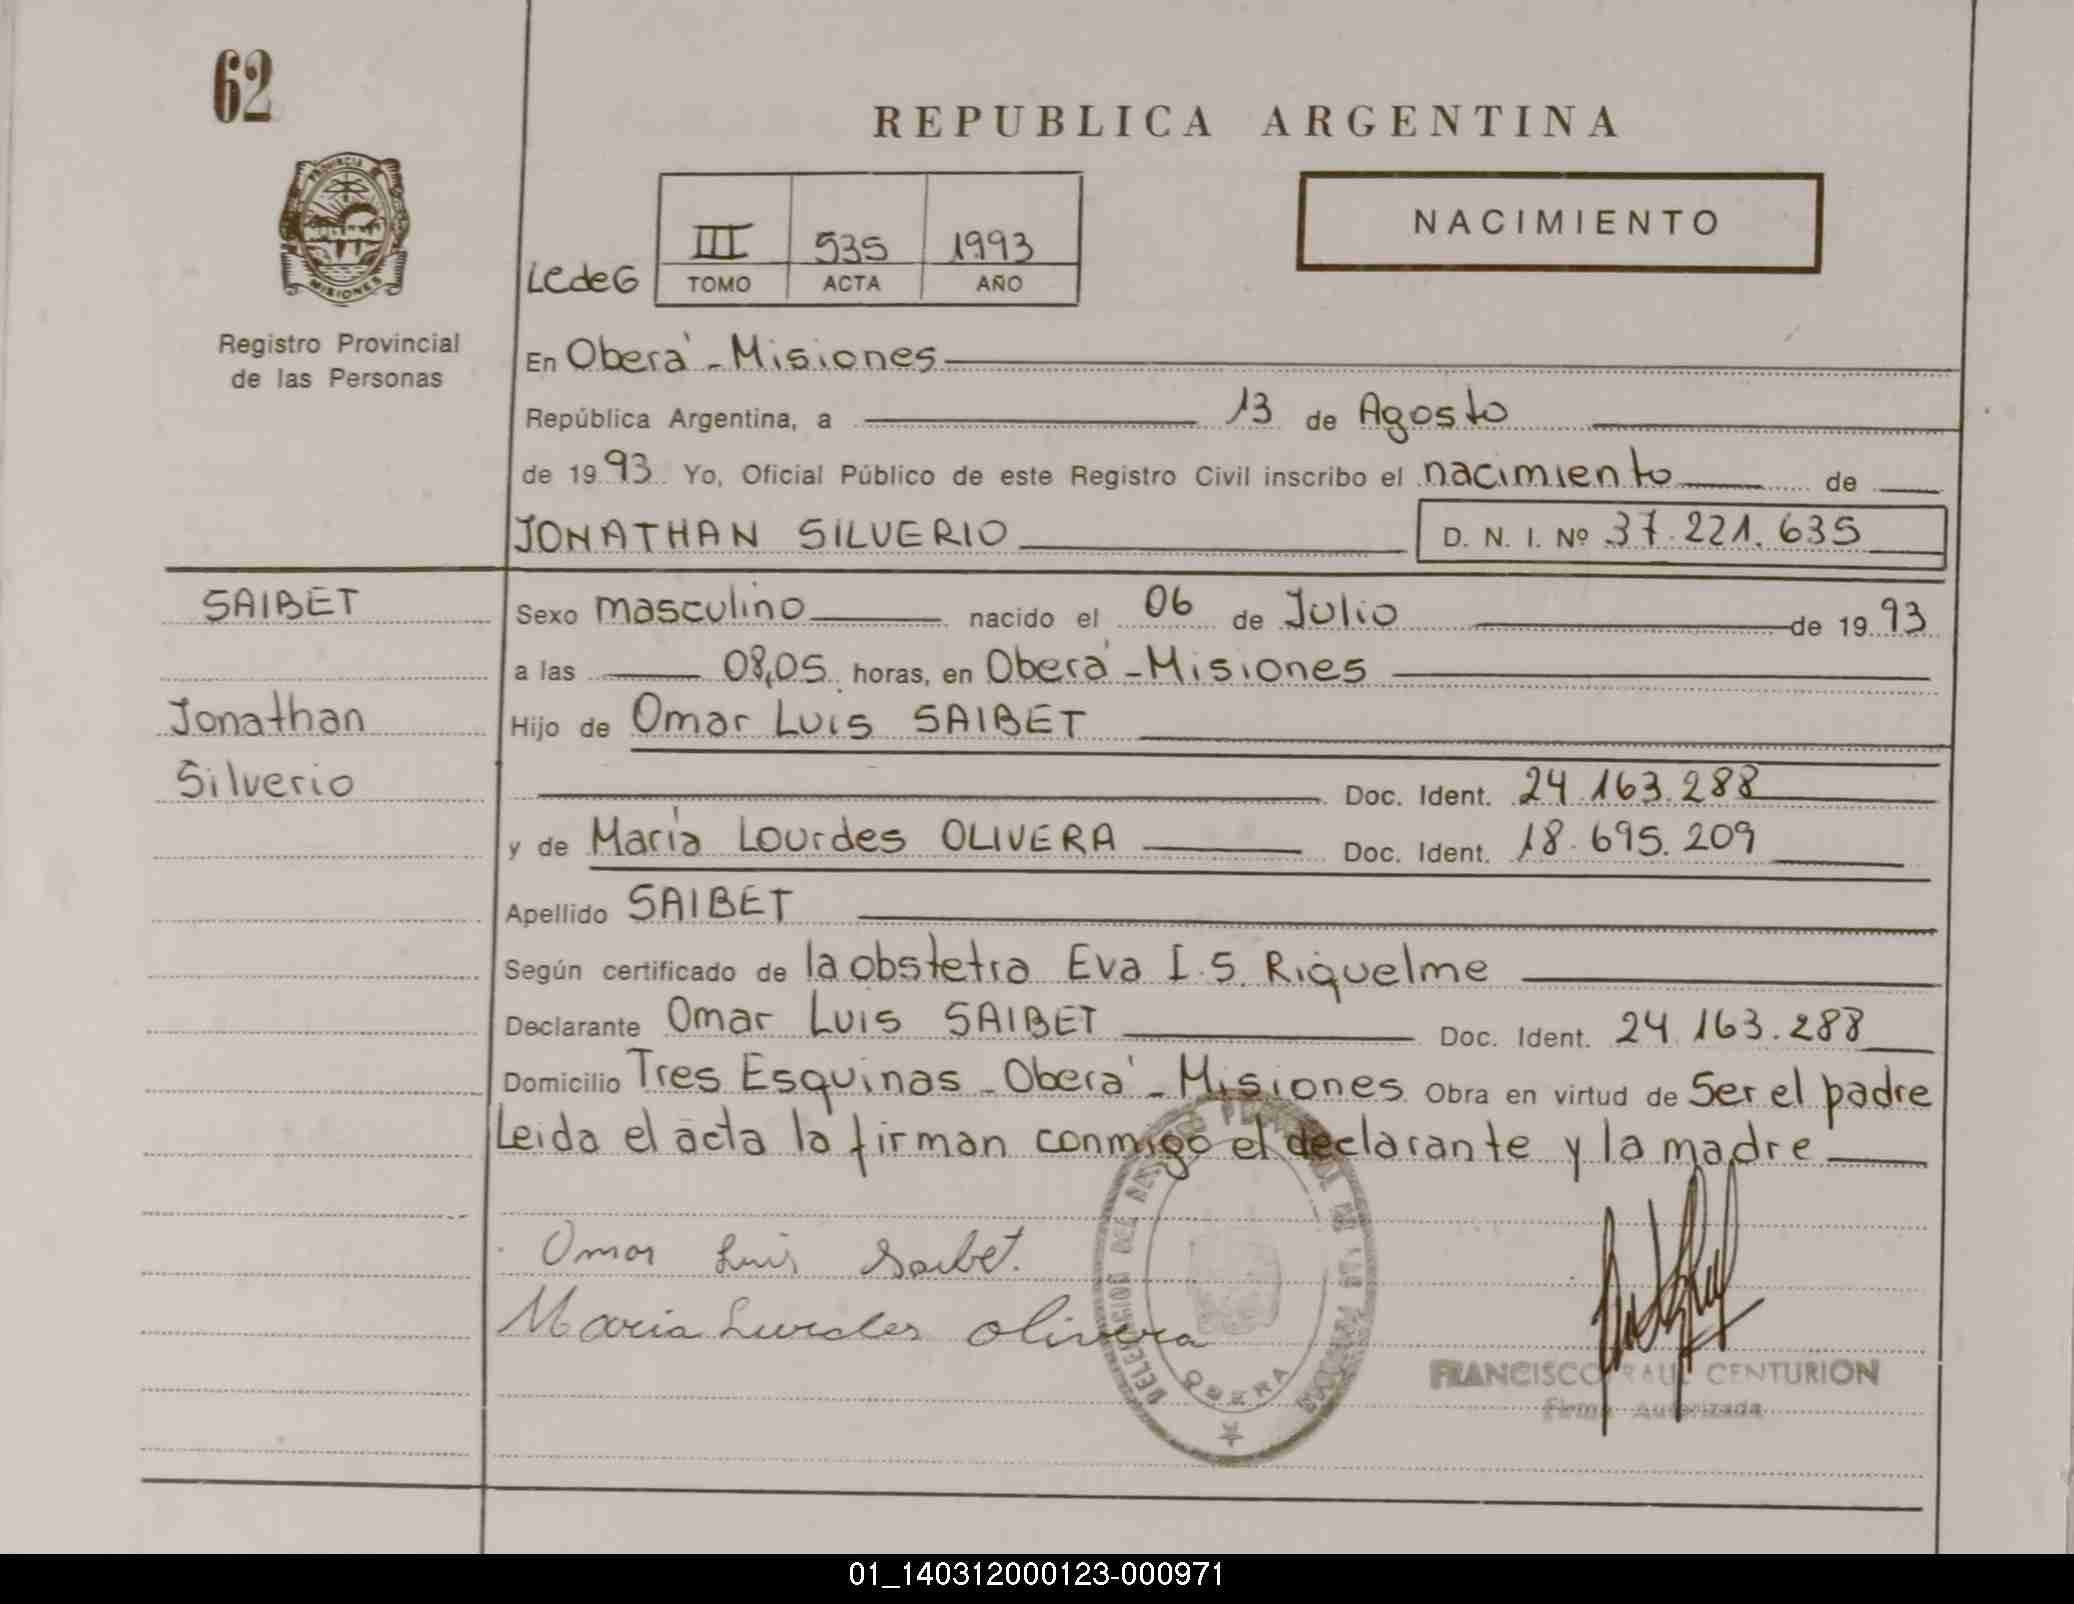 62
REPUBLICA ARGENTINA
PROVINCIA
MISIONES
Registro Provincial
de las Personas
LCdeG
III 535 1993
TOMO ACTA AÑO
NACIMIENTO
En Oberá - Misiones
República Argentina, a 13 de Agosto
de 1993 Yo, Oficial Público de este Registro Civil inscribo el nacimiento de
JONATHAN SILVERIO D. N. I. Nº 37.221.635
SAIBET
Jonathan
Silverio
Sexo masculino nacido el 06 de Julio de 1993
a las 08,05 horas, en Oberá - Misiones
Hijo de Omar Luis SAIBET
Doc. Ident. 24.163.288
y de María Lourdes OLIVERA Doc. Ident. 18.695.209
Apellido SAIBET
Según certificado de la obstetra Eva I.S. Riquelme
Declarante Omar Luis SAIBET Doc. Ident. 24.163.288
Domicilio Tres Esquinas - Oberá - Misiones Obra en virtud de Ser el padre
Leida el acta la firman conmigo el declarante y la madre
Omar Luis Saibet.
Maria Lurdes Olivera
OBERA
FRANCISCO RAUL CENTURION
Firma Autorizada
01_140312000123-000971